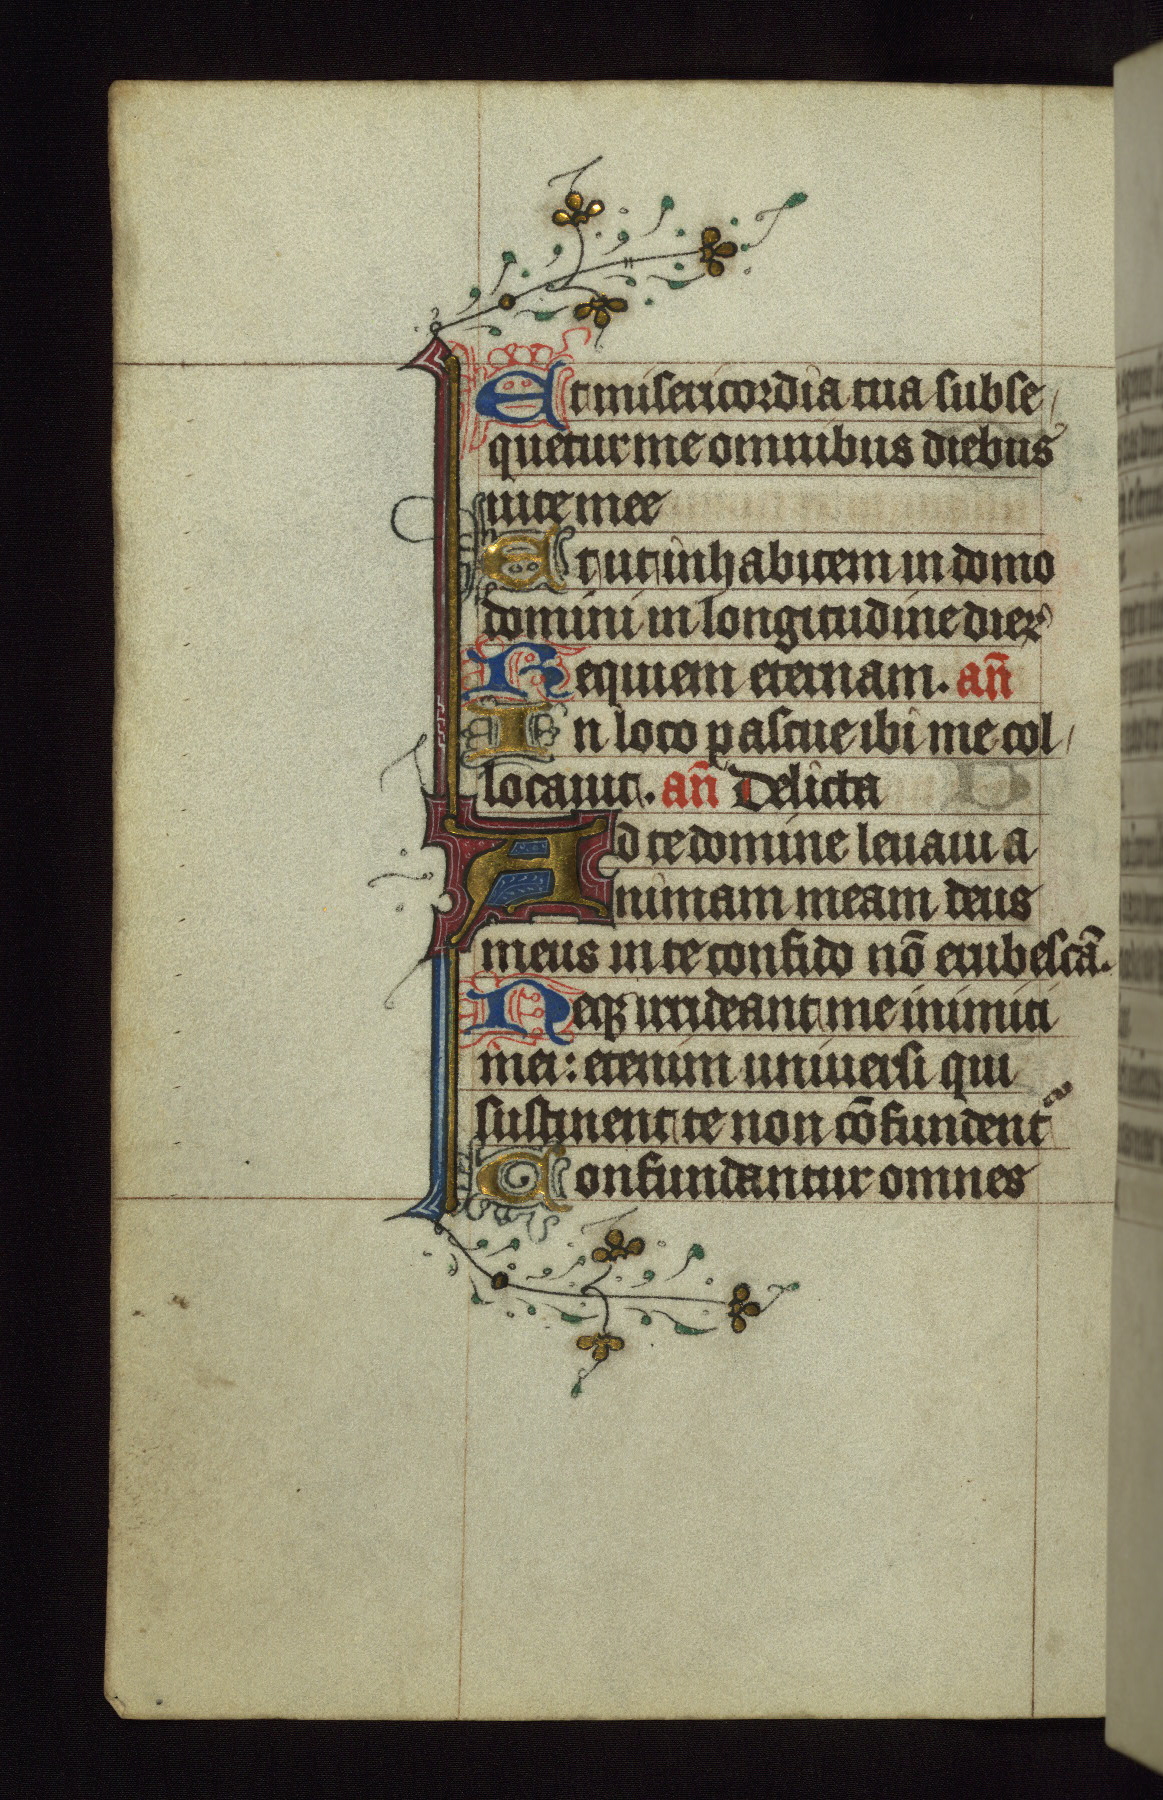 Et misericordia tua subse
quetur me omnibus diebus
uite mee
Et ut inhabitem in domo
domini in longitudine dieꝝ
Requiem eternam. an̄
In loco pascue ibi me col
locauit. an̄ Delicta
Ad te domine leuaui a
nimam meam deus
meus in te confido nō erubescā.
Neqꝫ irrideant me inimici
mei: etenim uniuersi qui
sustinent te non cōfundentᷣ
Confundantur omnes